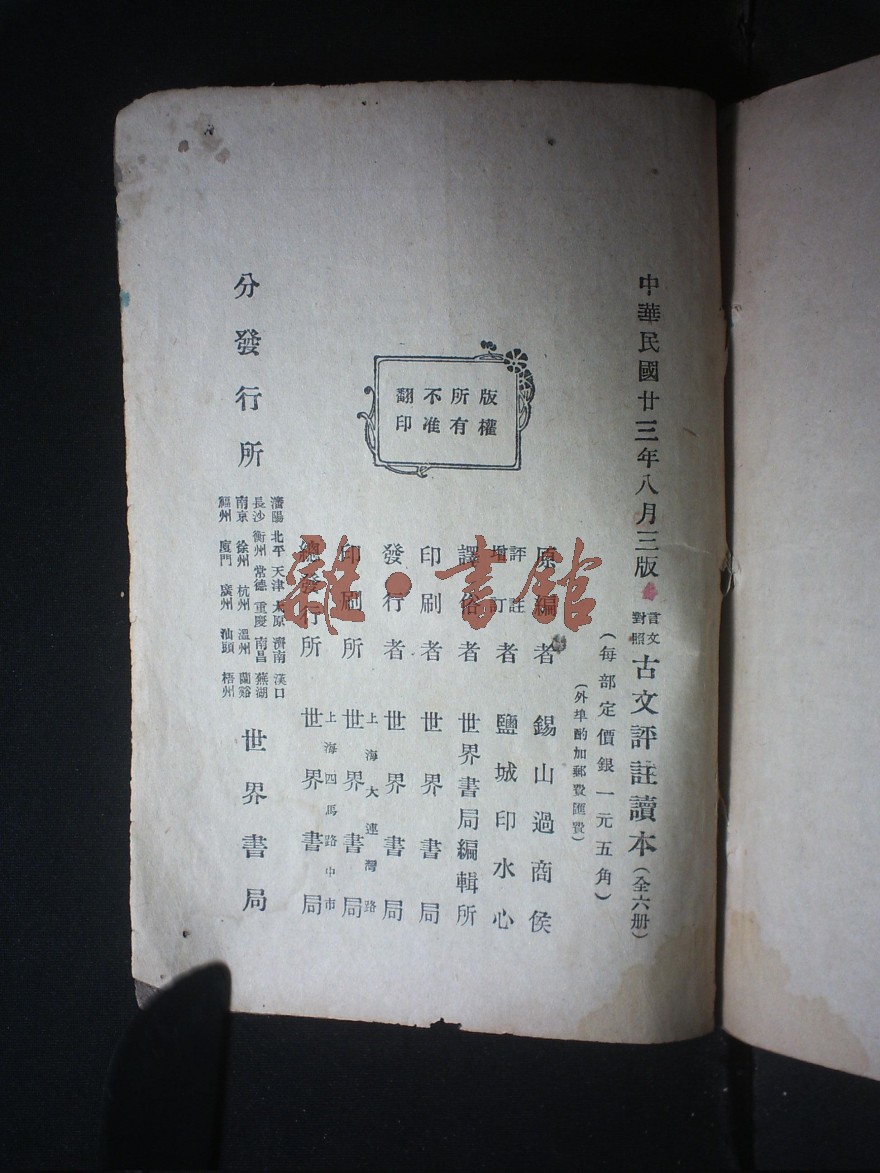 中華民國廿三年八月三版
言文對照 古文評註讀本(全六册)
(每部定價銀一元五角)
(外埠酌加郵費匯費)
原編者 錫山過商侯
評註增訂者 鹽城印水心
譯俗者 世界書局編輯所
印刷者 世界書局
發行者 世界書局
印刷所 上海大連灣路 世界書局
總發行所 上海四馬路中市 世界書局
版權
所有
不准
翻印
分發行所
瀋陽 北平 天津 太原 濟南 漢口
長沙 衡州 常德 重慶 南昌 蕪湖
南京 徐州 杭州 溫州 蘭谿
福州 廈門 廣州 汕頭 梧州
世界書局
雜·書館